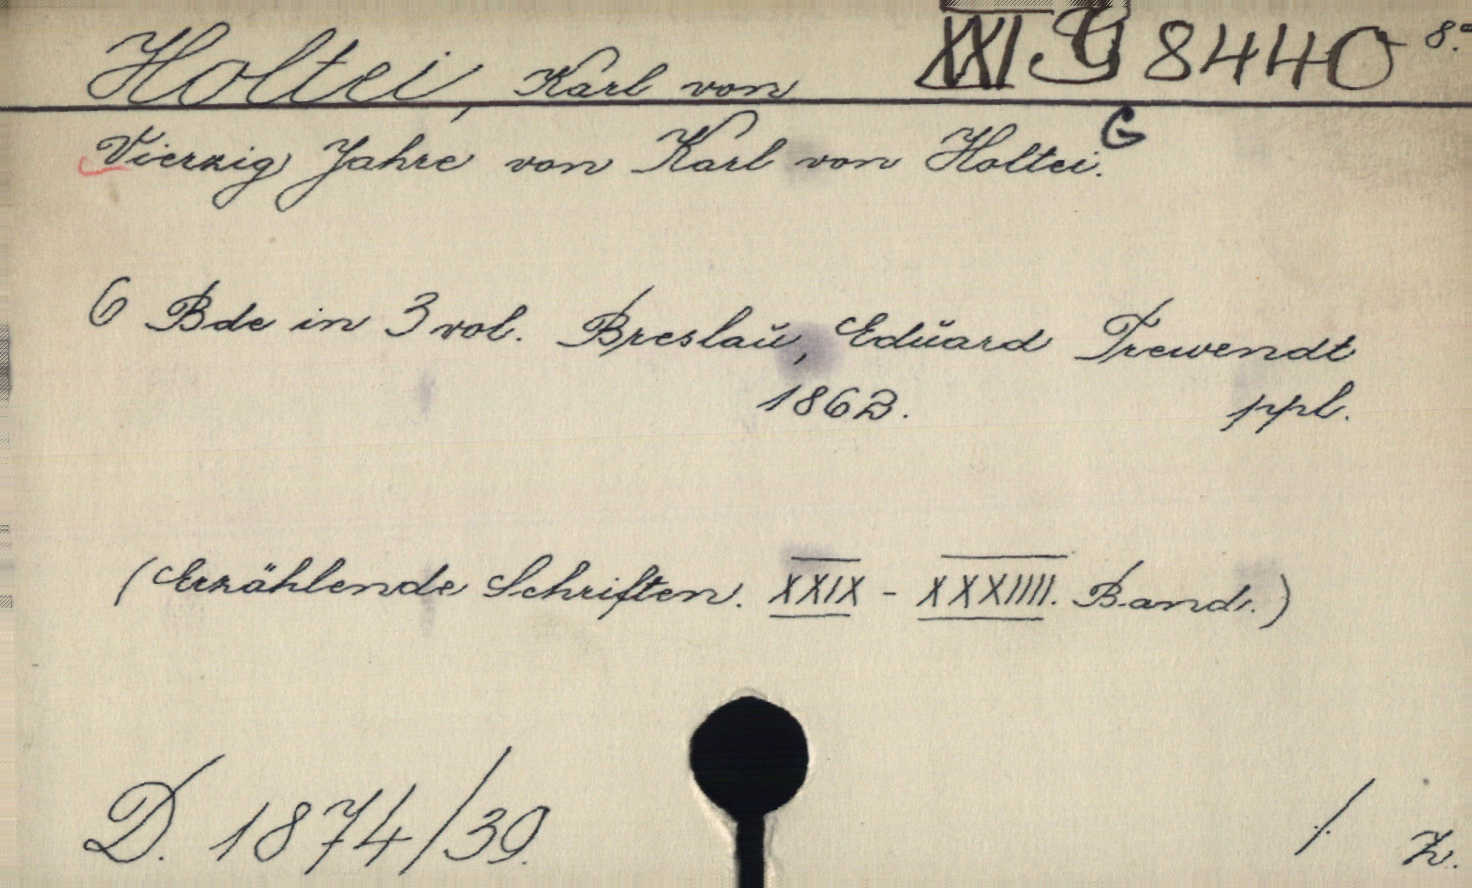 Holtei, Karl von XXI G 8440 8.°
Vierzig Jahre von Karl von Holtei. G
6 Bde in 3 vol. Breslau, Eduard Trewendt
1862. ppl.
(Erzählende Schriften. XXIX - XXXIIII. Band.)
D. 1874/39. ./. Z.